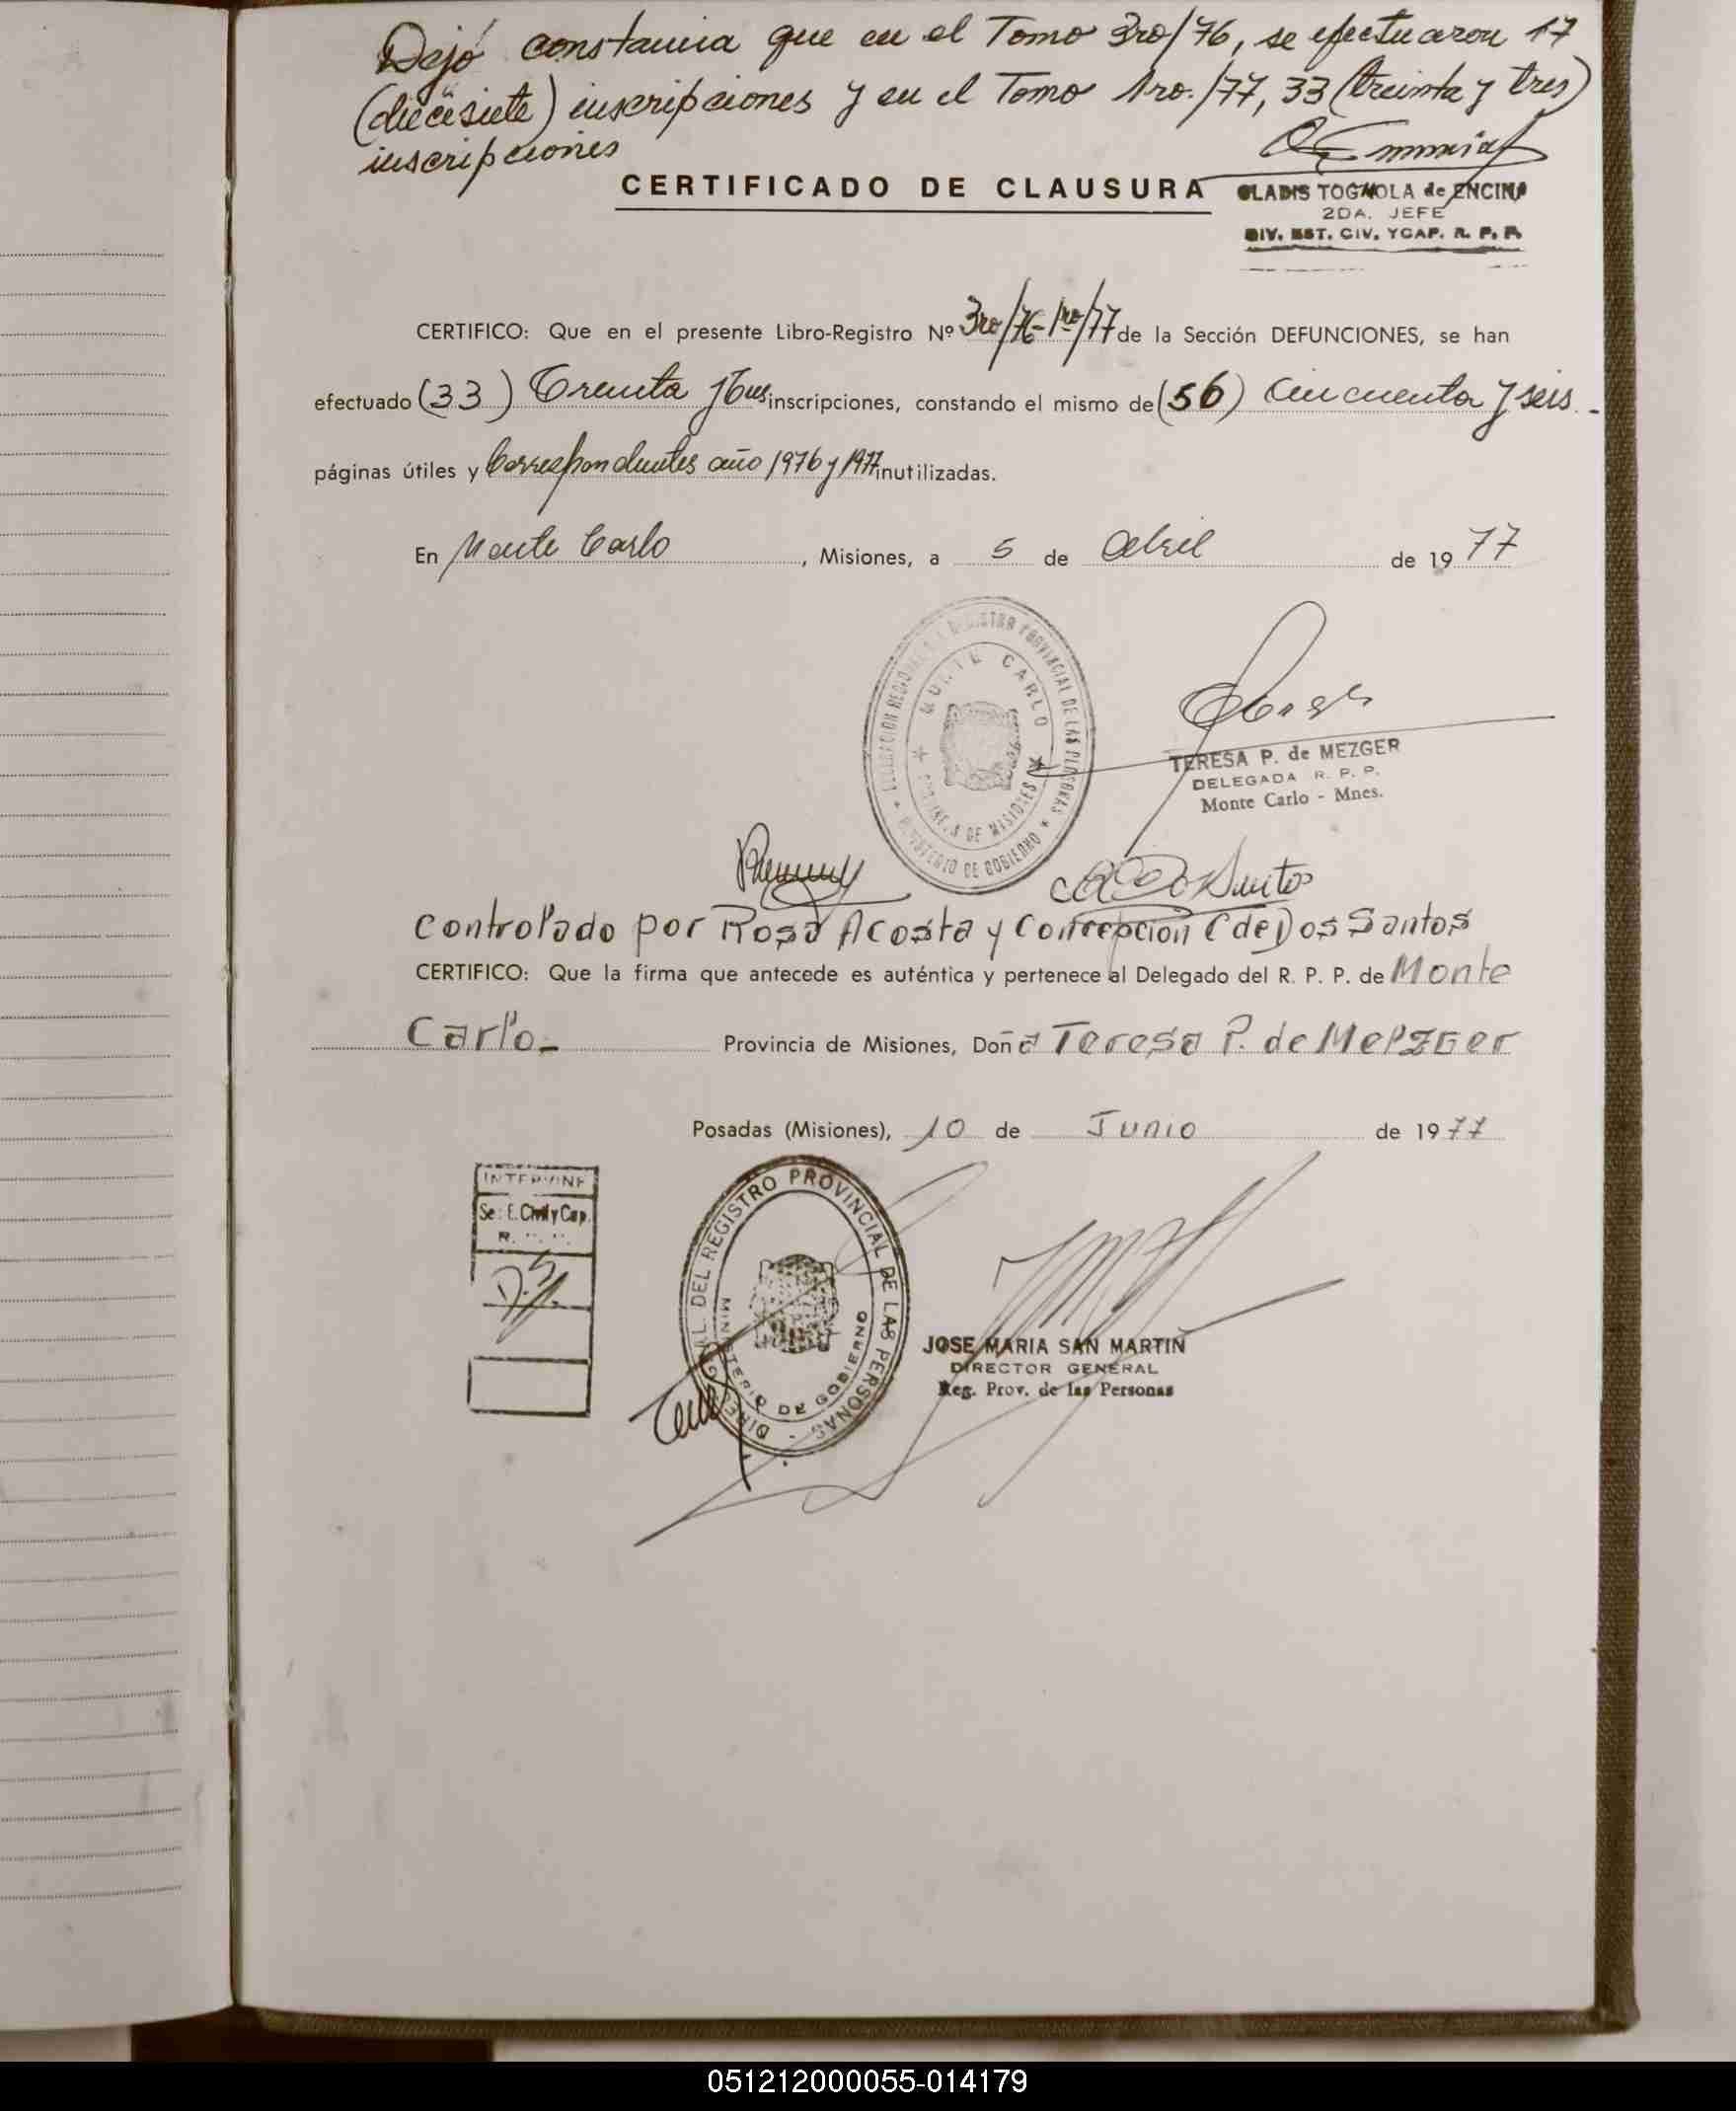 Dejó constancia que en el Tomo 3ro/76, se efectuaron 17
(diecisiete) inscripciones y en el Tomo 1ro./77, 33 (treinta y tres)
inscripciones
CERTIFICADO DE CLAUSURA
GLADIS TOGNOLA de ENCINA
2DA. JEFE
DIV. EST. CIV. YCAP. R. P. P.
CERTIFICO: Que en el presente Libro-Registro Nº 3ro/76-1ro/77 de la Sección DEFUNCIONES, se han
efectuado (33) Treinta y tres inscripciones, constando el mismo de (56) Cincuenta y seis.-
páginas útiles y Correspondientes año 1976 y 1977 inutilizadas.
En Monte Carlo, Misiones, a 5 de Abril de 1977
REGISTRO PROVINCIAL DE LAS PERSONAS
MONTE CARLO
PROVINCIA DE MISIONES
MINISTERIO DE GOBIERNO
TERESA P. de MEZGER
DELEGADA R. P. P.
Monte Carlo - Mnes.
Controlado por Rosa Acosta y Concepcion C de Dos Santos
CERTIFICO: Que la firma que antecede es auténtica y pertenece al Delegado del R. P. P. de Monte
Carlo.- Provincia de Misiones, Doña Teresa P. de Melzger
Posadas (Misiones), 10 de Junio de 1977
INTERVINE
Se: E. Civil y Cap.
R.
DIREC. GRAL. DEL REGISTRO PROVINCIAL DE LAS PERSONAS
MINISTERIO DE GOBIERNO
JOSE MARIA SAN MARTIN
DIRECTOR GENERAL
Reg. Prov. de las Personas
051212000055-014179